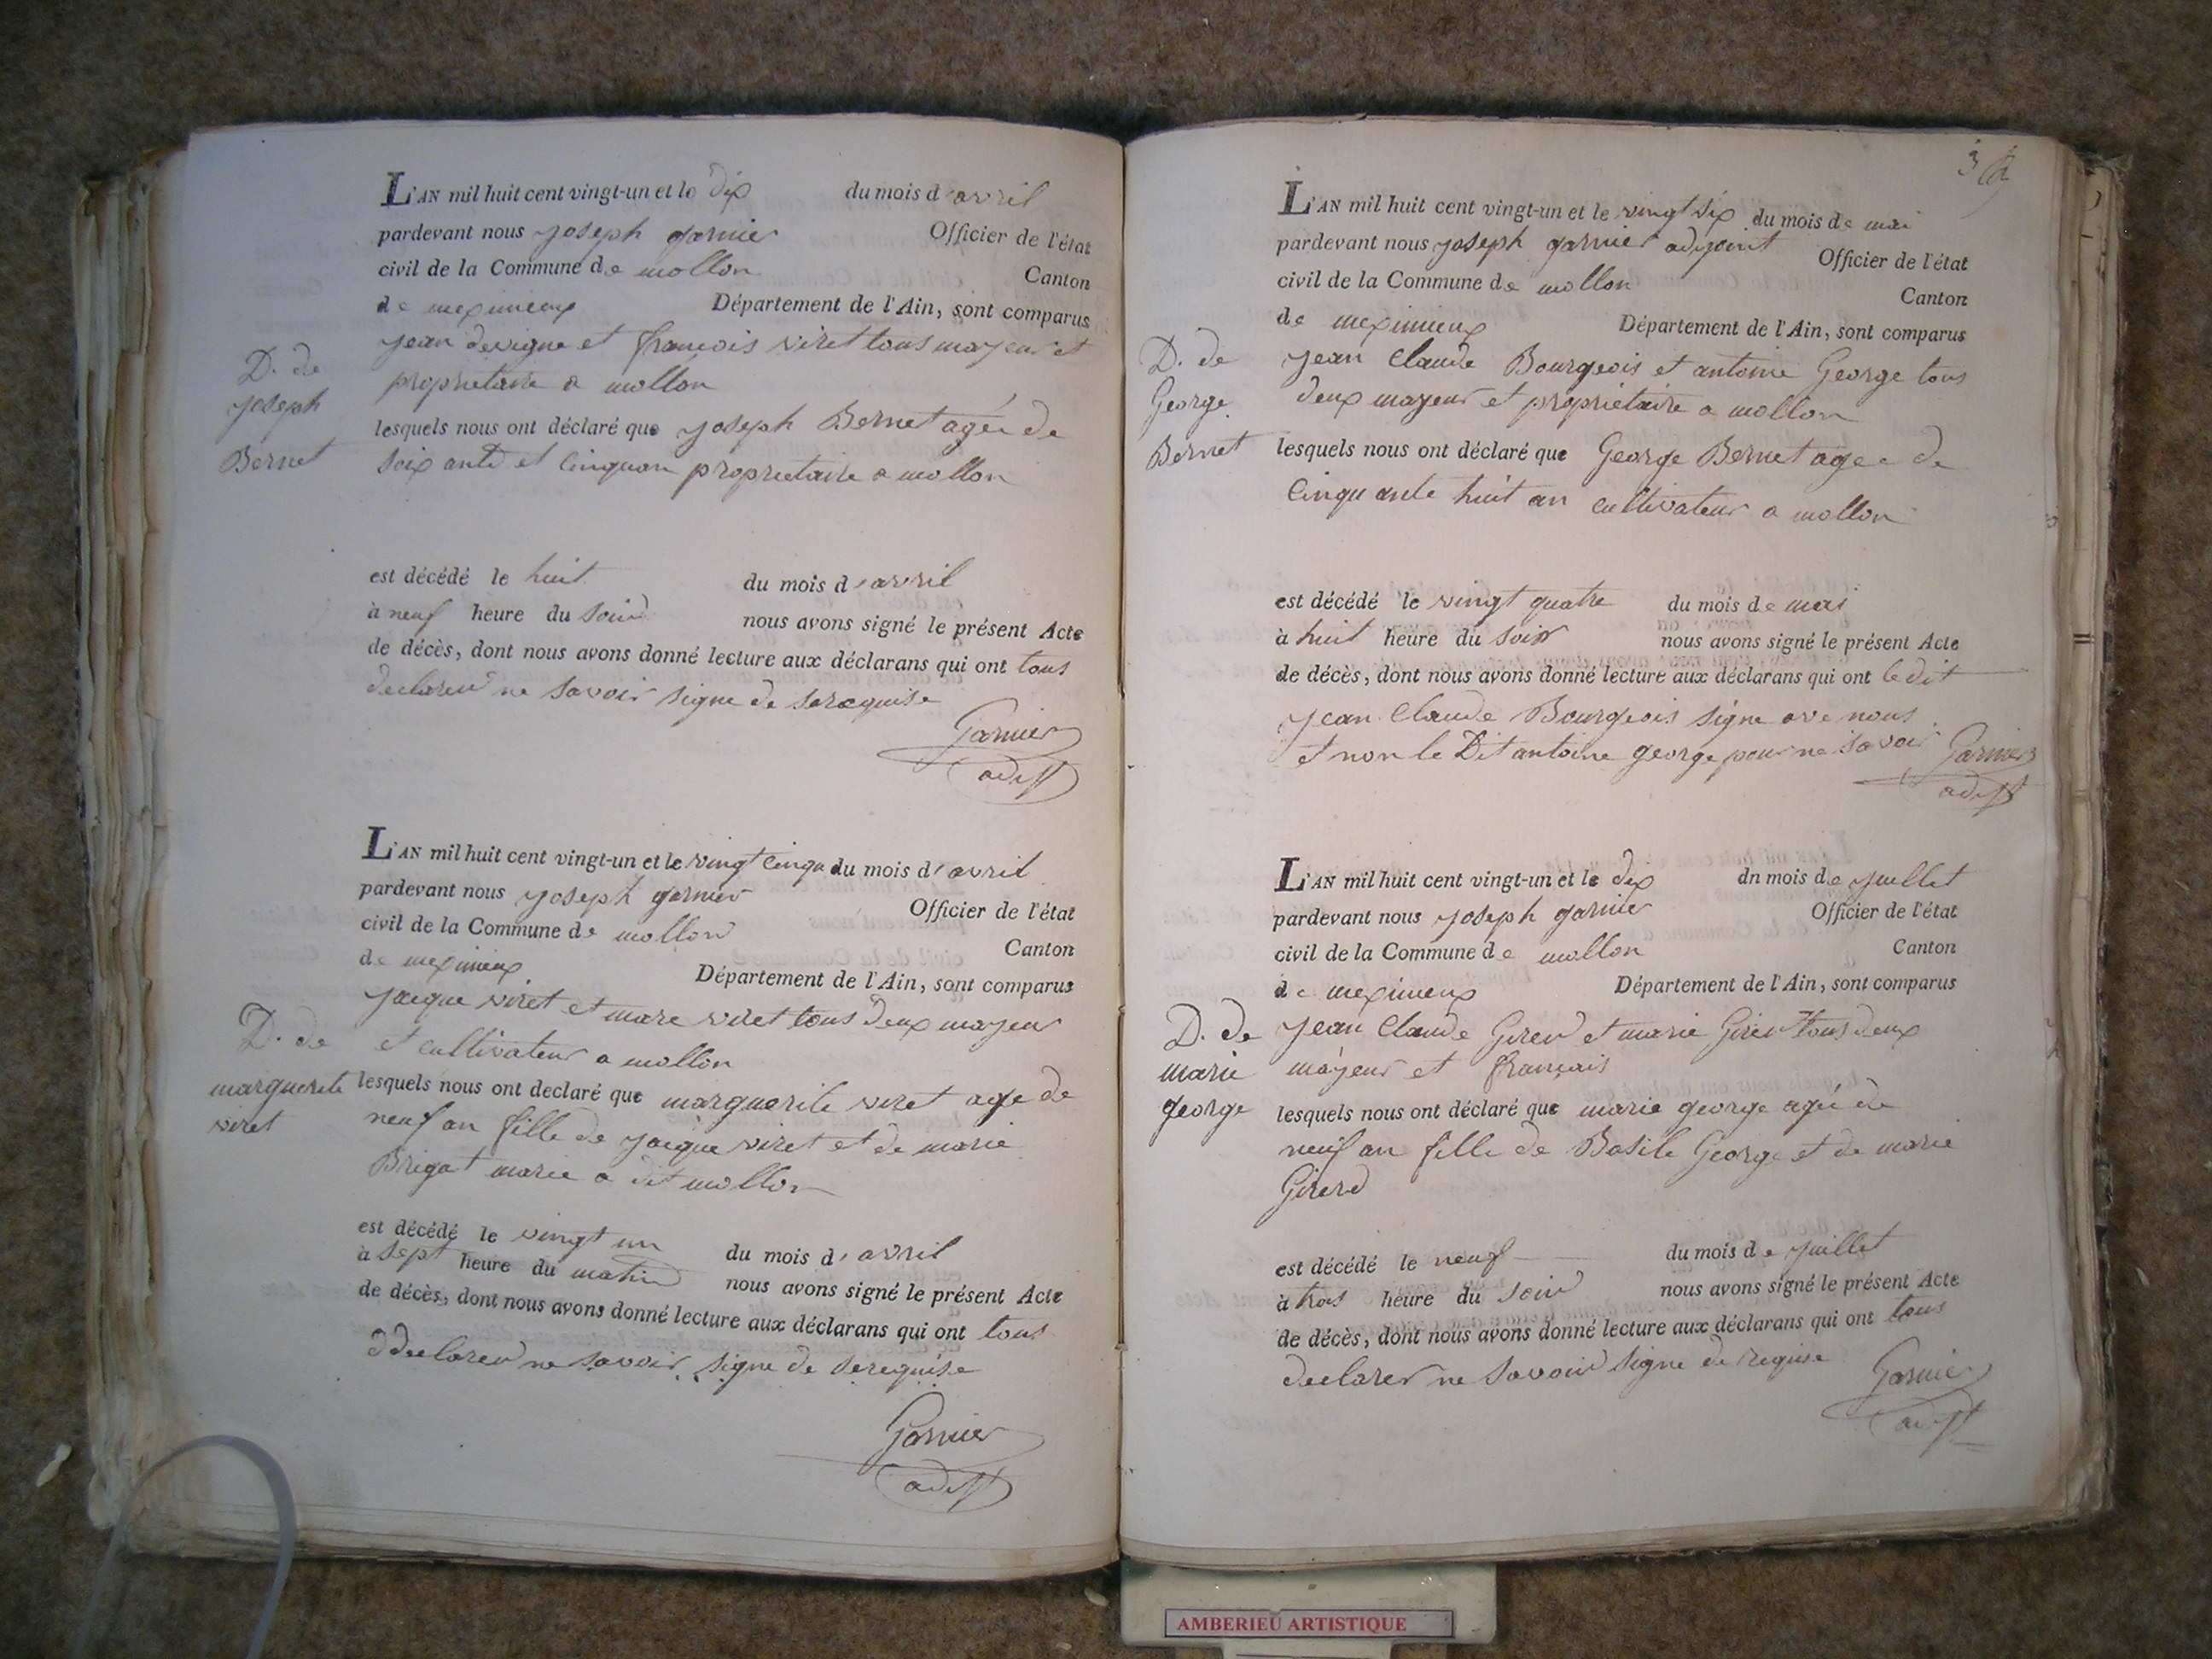 L'AN mil huit cent vingt-un et le dix du mois d'avril
pardevant nous joseph garnier Officier de l'état
civil de la Commune de mollon Canton
de meximieux Département de l'Ain, sont comparus
jean devigne et françois viret tous mayeur et
proprietaire a mollon
D. de
joseph
Bernet
lesquels nous ont déclaré que joseph Bernet agée de
soixante et cinquan proprietaire a mollon
est décédé le huit du mois d'avril
à neuf heure du soir nous avons signé le présent Acte
de décès, dont nous avons donné lecture aux déclarans qui ont tous
declarer ne savoir signe de
Garnier
adjt
L'AN mil huit cent vingt-un et le vingt cinq du mois d'avril
pardevant nous joseph garnier Officier de l'état
civil de la Commune de mollon Canton
de meximieux Département de l'Ain, sont comparus
jacque viret et marc viret tous deux mayeur
et cultivateur a mollon
D. de
marguerite
viret
lesquels nous ont declaré que marguerite viret age de
neuf an fille de jacque viret et de marie
Brigat marie a dit mollon
est décédé le vingt un du mois d'avril
à sept heure du matin nous avons signé le présent Acte
de décès, dont nous avons donné lecture aux déclarans qui ont tous
declarer ne savoir signe de serequise
Garnier
adjt
3
L'AN mil huit cent vingt-un et le vingt six du mois de mai
pardevant nous joseph garnier adjoint Officier de l'état
civil de la Commune de mollon Canton
de meximieux Département de l'Ain, sont comparus
jean Claude Bourgeois et antoine George tous
deux mayeur et proprietaire a mollon
D. de
George
Bernet
lesquels nous ont déclaré que George Bernet agee de
Cinquante huit an cultivateur a mollon
est décédé le vingt quatre du mois de mai
à huit heure du soir nous avons signé le présent Acte
de décès, dont nous avons donné lecture aux déclarans qui ont le dit
jean Claude Bourgeois signe ave nous
et non le Dit antoine george pour ne savoir
Garnier
adjt
L'AN mil huit cent vingt-un et le dix dn mois de juillet
pardevant nous joseph garnier Officier de l'état
civil de la Commune de mollon Canton
de meximieux Département de l'Ain, sont comparus
jean Claude Girer et marie Girer tous deux
mayeur et français
D. de
marie
george
lesquels nous ont déclaré que marie george agée de
neuf an fille de Basile George et de marie
Girerd
est décédé le neuf du mois de juillet
à trois heure du soir nous avons signé le présent Acte
de décès, dont nous avons donné lecture aux déclarans qui ont tous
declarer ne savoir signe de requise
Garnier
adjt
AMBERIEU ARTISTIQUE